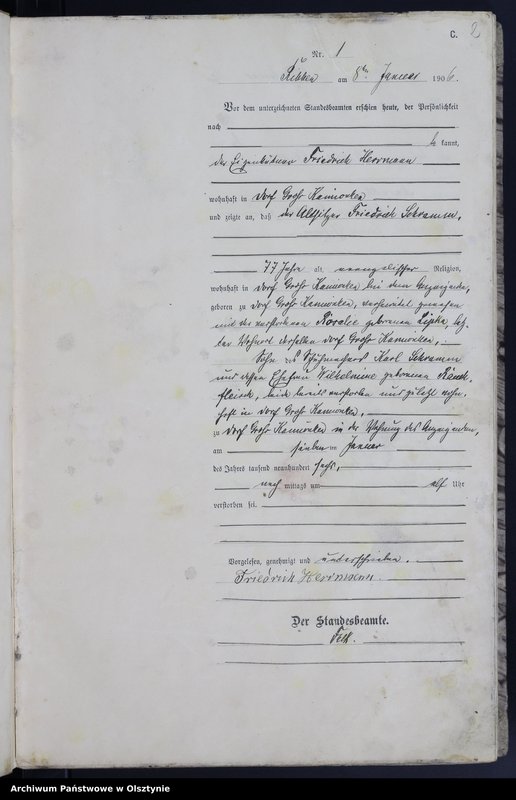 C. 2
Nr. 1
Ribben am 8ten Januar 1906.
Vor dem unterzeichneten Standesbeamten erschien heute, der Persönlichkeit
nach
be kannt,
der Eigenkätner Friedrich Herrmann
wohnhaft in Dorf Groß Kamionken
und zeigte an, daß der Altsitzer Friedrich Schramm,
77 Jahr alt, evangelischer Religion,
wohnhaft in Dorf Groß Kamionken bei dem Anzeigenden,
geboren zu Dorf Groß Kamionken, verheiratet gewesen
mit der verstorbenen Rosalie geborenen Lipka,
der Wohnort derselben Dorf Groß Kamionken,
Sohn des Schuhmachers Karl Schramm
und dessen Ehefrau Wilhelmine geborenen
beide bereits verstorben und zuletzt wohn-
haft in Dorf Groß Kamionken,
zu Dorf Groß Kamionken in der Wohnung des Anzeigenden,
am sieben ten Januar
des Jahres tausend neunhundert sechs,
nach mittags um elf Uhr
verstorben sei.
Vorgelesen, genehmigt und unterschrieben.
Friedrich Herrmann
Der Standesbeamte.
Archiwum Państwowe w Olsztynie